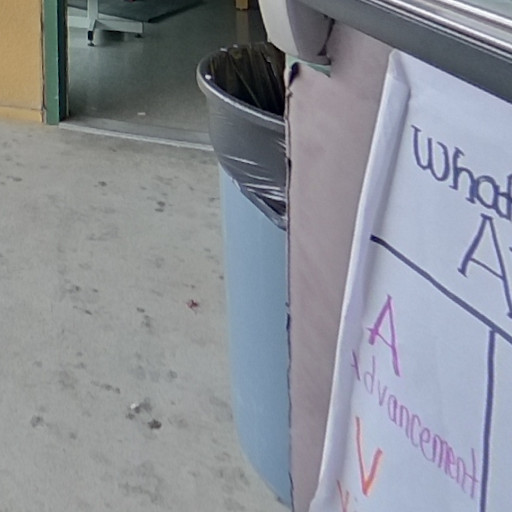 What
A
A
Advancement
V